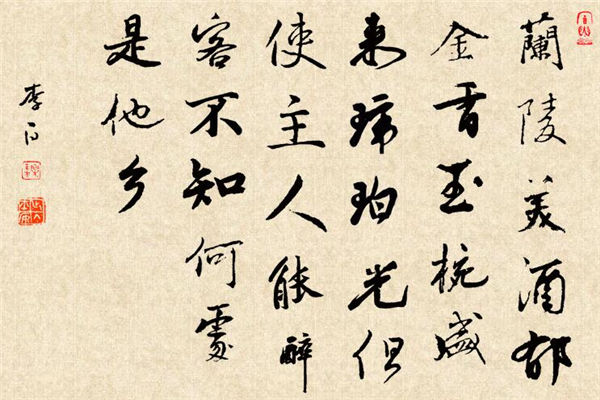 蘭陵美酒郁
金香玉椀盛
来琥珀光但
使主人能醉
客不知何處
是他乡
李白